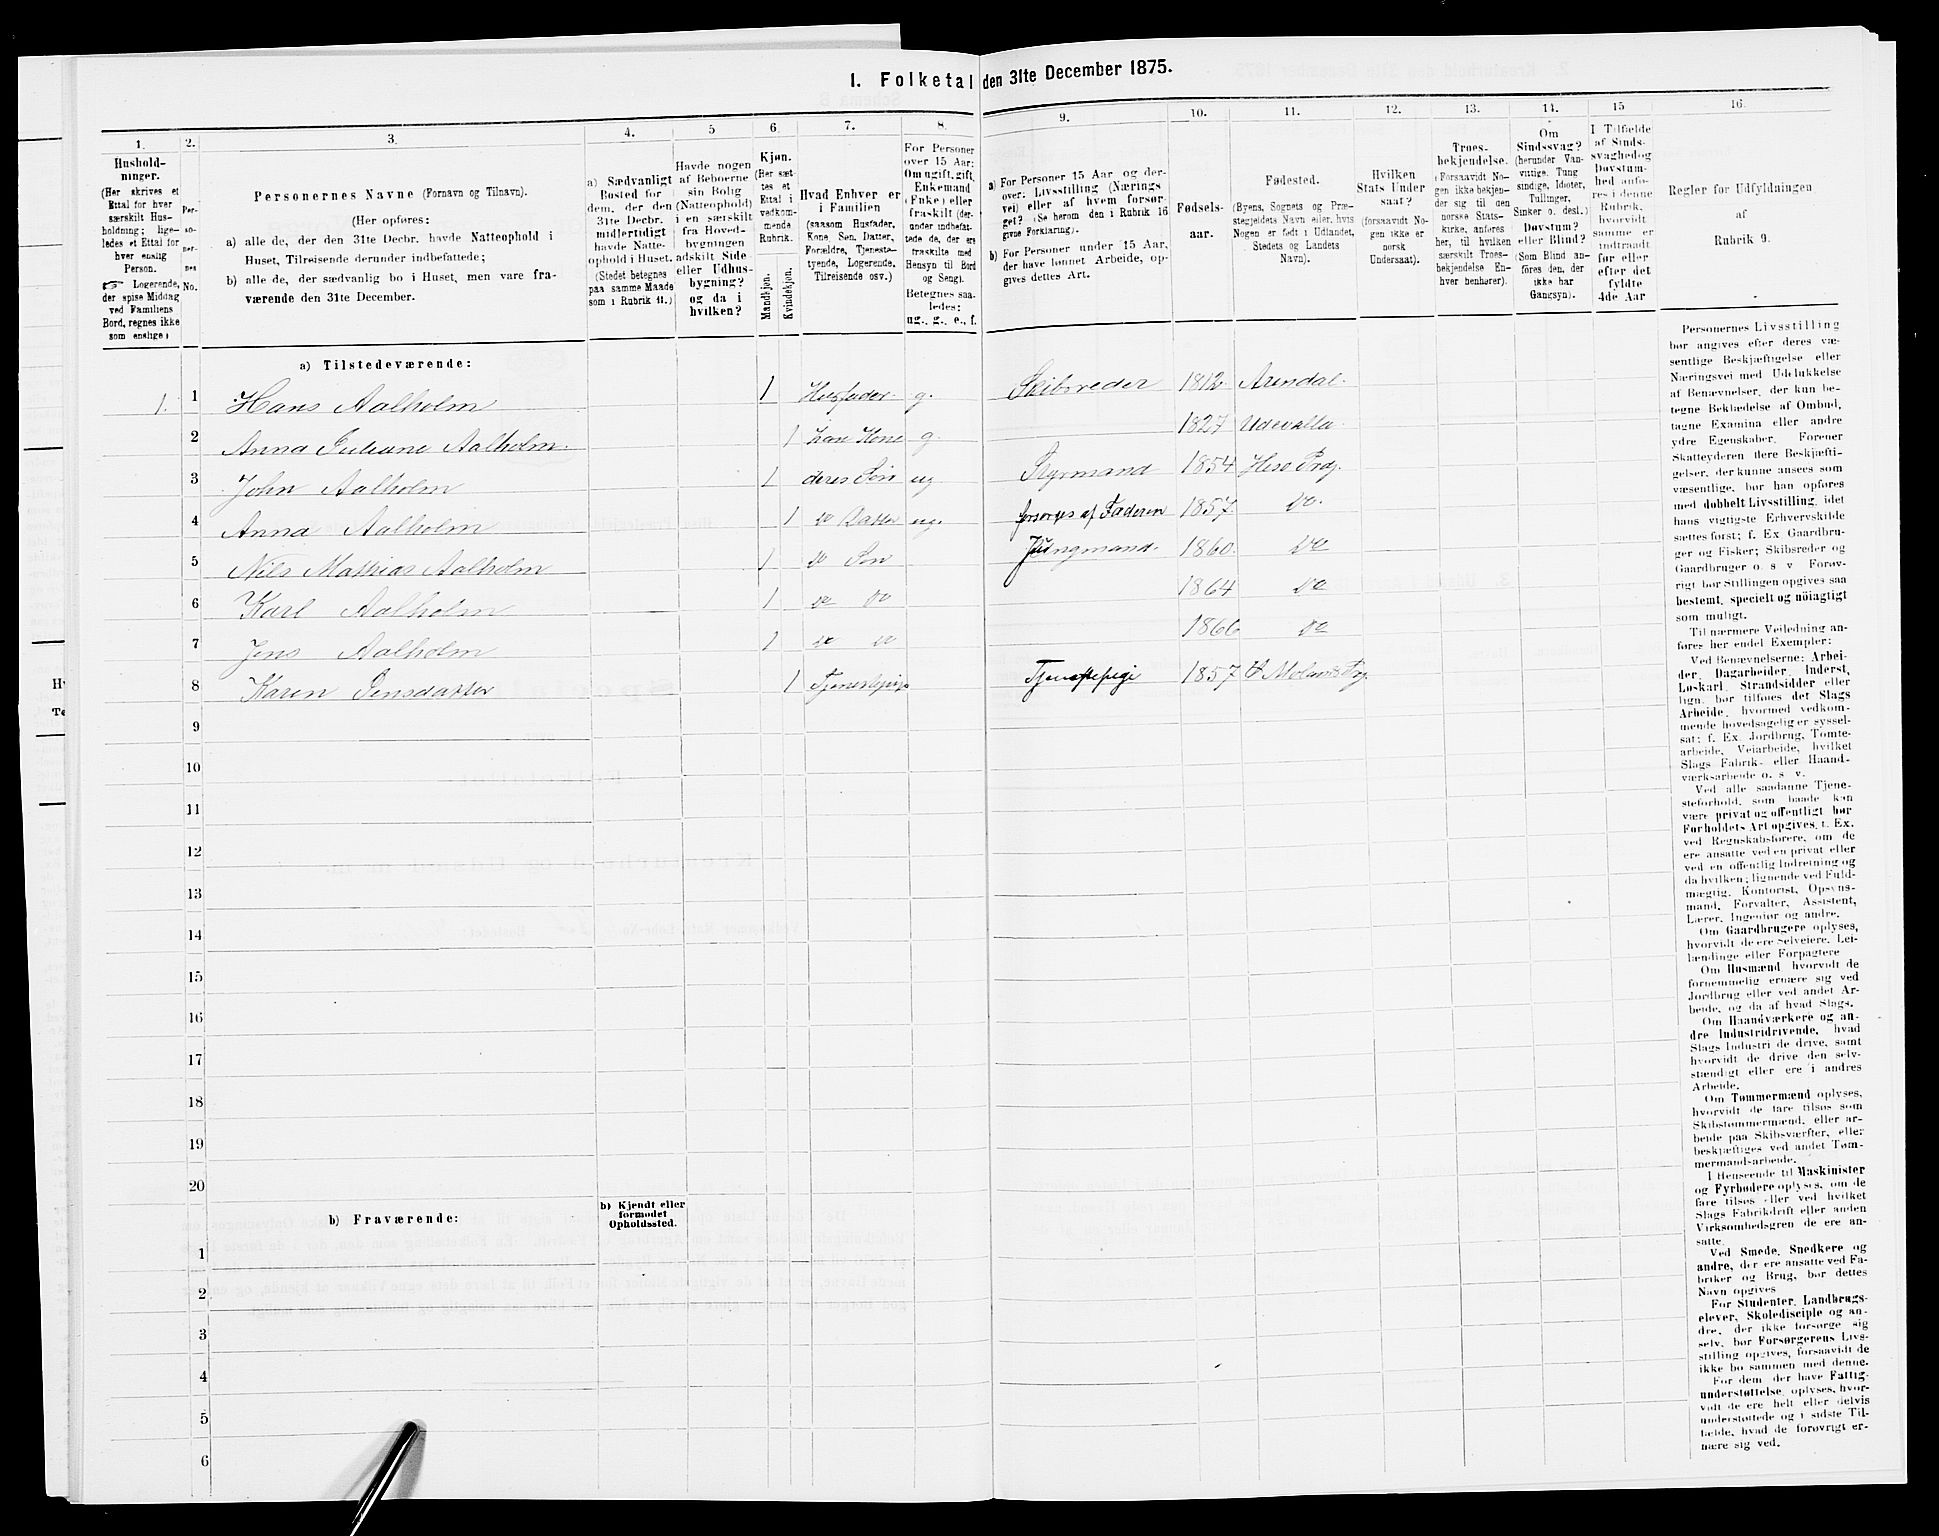 1. Folketal den 31te December 1875.
1. 2. 3. 4. 5 6. 7. 8. 9. 10. 11. 12. 13. 14. 15 16.
Hushold-
ninger.
(Her skrives et
Ettal for hver
særskilt Hus-
holdning; lige-
ledes et Ettal for
hver enslig
Person.
☞ Logerende,
der spise Middag
ved Familiens
Bord, regnes ikke
som enslige)
Per-
so-
ner-
nes
No.
Personernes Navne (Fornavn og Tilnavn).
(Her opføres:
a) alle de, der den 31te Decbr. havde Natteophold i
Huset, Tilreisende derunder indbefattede;
b) alle de, der sædvanlig bo i Huset, men vare fra-
værende den 31te December.
a) Sædvanligt
Bosted for
dem, der den
31te Decbr.
midlertidigt
havde Natte-
ophold i Huset.
(Stedet betegnes
paa samme Maade
som i Rubrik 11.)
Havde nogen
af Beboerne
sin Bolig
(Natteophold)
i en særskilt
fra Hoved-
bygningen
adskilt Side-
eller Udhus-
bygning?
og da i
hvilken?
Kjøn.
(Her sæt-
tes et
Ettal i
vedkom-
mende
Rubrik.
Mandkjøn.
Kvindekjøn.
Hvad Enhver er
i Familien
(saasom Husfader,
Kone, Søn, Datter,
Forældre, Tjeneste-
tyende, Logerende,
Tilreisende osv.)
For Personer
over 15 Aar:
Om ugift, gift,
Enkemand
(Enke) eller
fraskilt (der-
under indbefat-
tede de, der ere
fraskilte med
Hensyn til Bord
og Seng).
Betegnes saa-
ledes:
ug., g., e., f.
a) For Personer 15 Aar og der-
over: Livsstilling (Nærings
vei) eller af hvem forsør
get? (Se herom den i Rubrik 16
givne Forklaring).
b) For Personer under 15 Aar,
der have lønnet Arbeide, op-
gives dettes Art.
Fødsels-
aar.
Fødested.
(Byens, Sognets og Præ-
stegjeldets Navn eller, hvis
Nogen er født i Udlandet,
Stedets og Landets
Navn).
Hvilken
Stats Under
saat?
(forsaavidt No-
gen ikke er
norsk
Undersaat).
Troes-
bekjendelse.
(Forsaavidt No-
gen ikke bekjen-
der sig til den
norske Stats-
kirke, anføres
her, til hvilken
særskilt Troes-
bekjendelse En-
hver henhører).
Om
Sindssvag?
(herunder Van-
vittige, Tung
sindige, Idioter,
Tullinger,
Sinker o. desl.)
Døvstum?
eller Blind?
(Som Blind an-
føres den, der
ikke har
Gangsyn).
I Tilfælde
af Sinds-
svaghed og
Døvstum-
hed anfø-
res i denne
Rubrik,
hvorvidt
samme er
indtraadt
før eller
efter det
fyldte
4de Aar
Regler for Udfyldningen
af
Rubrik 9.
a) Tilstedeværende:
1. 1 Hans Aalholm 1 Husfader g. Skibsreder 1812. Arendal.
2 Anna Juliane Aalholm 1 hans Kone g 1827 Udevalla
3 John Aalholm 1 deres Søn ug Styrmand 1854 Hisø Prg.
4 Anna Aalholm 1 do Datter ug. forsørges af Faderen 1857. do.
5 Nils Mathias Aalholm 1 do Søn Jungmand. 1860. do
6 Karl Aalholm 1 do do 1864 do
7 Jens Aalholm 1 do do 1866 do
8 Karen Jensdatter 1 Tjenestepige Tjenestepige 1857 Ø Molands Prg.
9
10
11
12
13
14
15
16
17
18
19
20
b) Fraværende:
b) Kjendt eller
formodet
Opholdssted.
1
2
3
4
5
6
Personernes Livsstilling
bør angives efter deres væ-
sentlige Beskjæftigelse eller
Næringsvei med Udelukkelse
af Benævnelser, der kun be-
tegne Beklædelse af Ombud,
tagne Examina eller andre
ydre Egenskaber. Forener
Skatteyderen flere Beskjæfti-
gelser, der kunne ansees som
væsentlige, bør han opføres
med dobbelt Livsstilling, idet
hans vigtigste Erhvervskilde
sættes først; f. Ex Gaardbru-
ger og Fisker; Skibsreder og
Gaardbruger o. s v Forøv-
rigt bør Stillingen opgives saa
bestemt, specielt og nöiagtigt
som muligt.
Til nærmere Veiledning an-
føres her endel Exempler:
Ved Benævnelserne: Arbei-
der, Dagarbeider, Inderst,
Løskarl, Strandsidder eller
lign. bør tilføies det Slags
Arbeide, hvormed vedkom-
mende hovedsagelig er syssel-
sat; f. Ex. Jordbrug, Tomte-
arbeide, Veiarbeide, hvilket
Slags Fabrik- eller Haand-
værksarbeide o. s. v.
Ved alle saadanne Tjene-
steforhold, som baade kan
være privat og offentligt bør
Forholdets Art opgives, t. Ex.
ved Regnskabsførere, om de
ere ansatte ved en privat eller
ved en offentlig Indretning og
da hvilken; lignende ved Fuld-
mægtig, Kontorist, Opsyns-
mand, Forvalter, Assistent,
Lærer, Ingeniør og andre.
Om Gaardbrugere oplyses,
hvorvidt de ere Selveiere, Lei-
lændinge eller Forpagtere
Om Husmænd hvorvidt de
fornemmelig ernære sig ved
Jordbrug eller ved andet Ar-
beide, og da af hvad Slags.
Om Haandværkere og an-
dre Industridrivende, hvad
Slags Industri de drive, samt
hvorvidt de drive den selv-
stændigt eller ere i andres
Arbeide.
Om Tømmermænd oplyses,
hvorvidt de fare tilsøs som
Skibstømmermænd, eller ar-
beide paa Skibsværfter, eller
beskjæftiges ved andet Tøm-
mermand-arbeide.
I Henseende til Maskinister
og Fyrbødere oplyses, om de
fare tilsøs eller ved hvilket
Slags Fabrikdrift eller anden
Virksomhedsgren de ere an-
satte.
Ved Smede, Snedkere og
andre, der ere ansatte ved Fa-
briker og Brug, bør dettes
Navn opgives
For Studenter, Landbrugs-
elever, Skoledisciple og an-
dre, der ikke forsørge sig
selv, bør Forsørgerens Livs-
stilling opgives, forsaavidt de
ikke bo sammen med denne.
For dem der have Fattig-
understøttelse, oplyses, hvor-
vidt de ere helt eller delvis
understøttede og i sidste Til-
fælde, hvad de forøvrigt er-
nære sig ved.